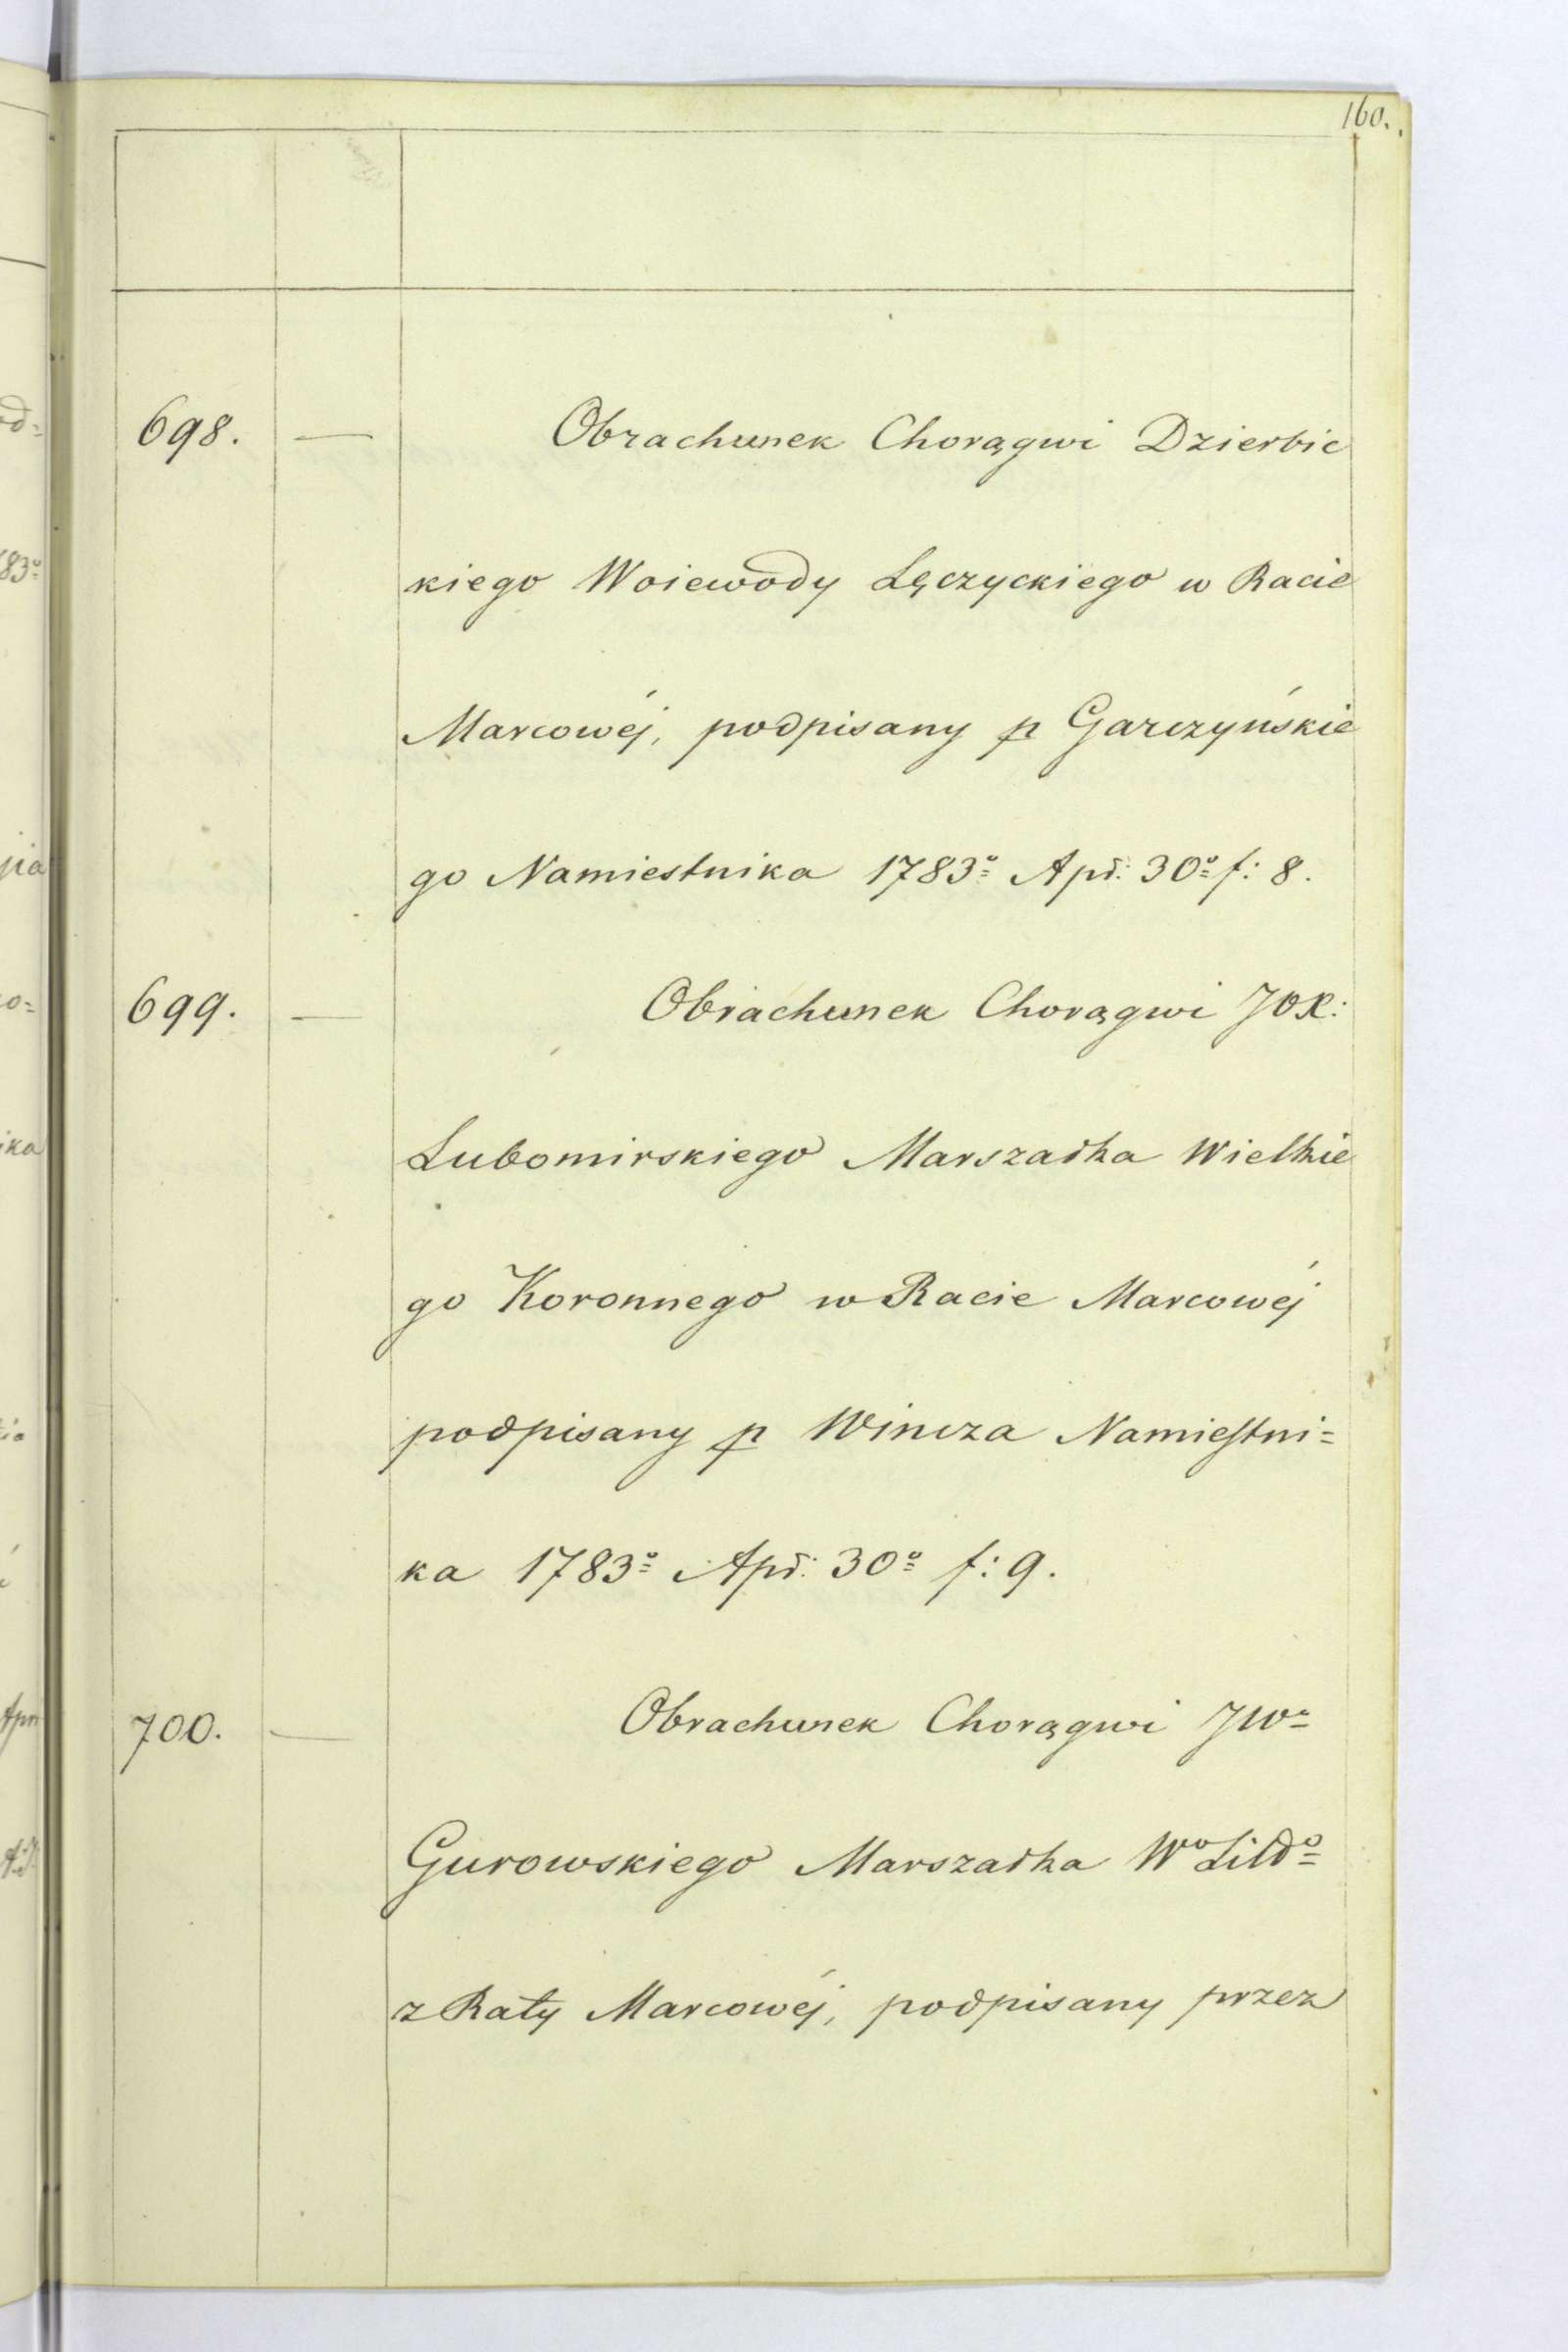 160.
698. — Obrachunek Chorągwi Dzierbic
kiego Woiewody Łęczyckiego w Racie
Marcowéj, podpisany p Garczyńskie
go Namiestnika 1783o Apr: 30o f: 8.
699. — Obrachunek Chorągwi JOX:
Lubomirskiego Marszałka Wielkie
go Koronnego w Racie Marcowéj
podpisany p Wincza Namiestni=
ka 1783o Apr: 30o f: 9.
700. — Obrachunek Chorągwi JWo
Gurowskiego Marszałka Wo Litdo
z Raty Marcowéj, podpisany przez